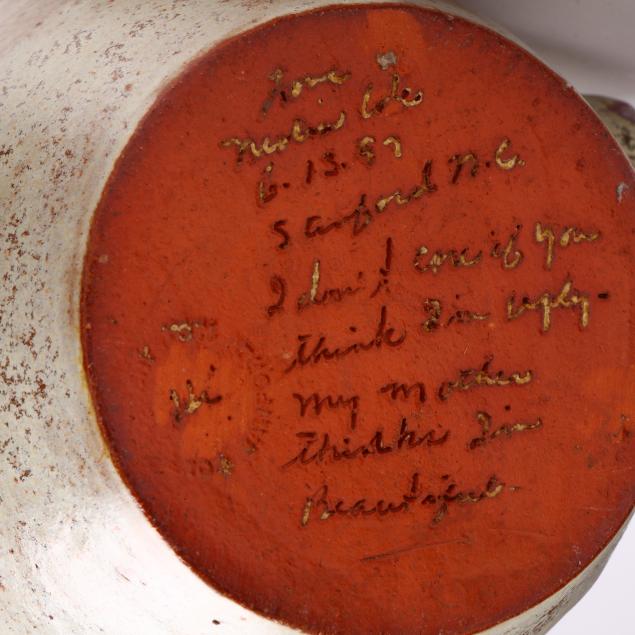 Neolia Cole
6.13.97
Sanford N.C.
I don't care if you
think I'm ugly.
My Mother
thinks I'm
Beautiful.